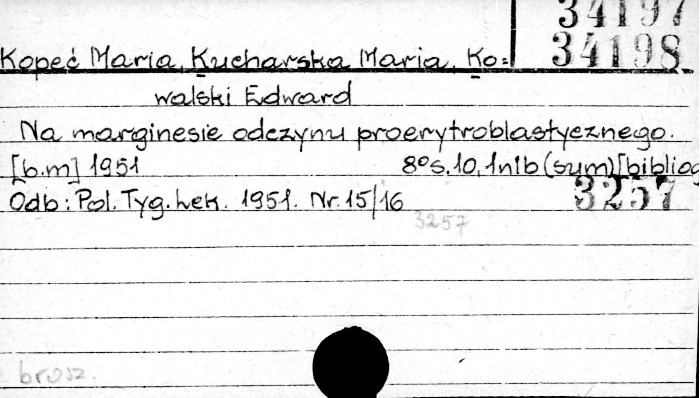 34197
34198
Kopeć Maria, Kucharska Maria, Ko=
walski Edward
Na marginesie odczynu proerytroblastycznego.
[b.m] 1951 8° s. 10, 1nlb (sum) [bibliog
Odb: Pol. Tyg. Lek. 1951. Nr. 15/16
3257
3257
brosz.